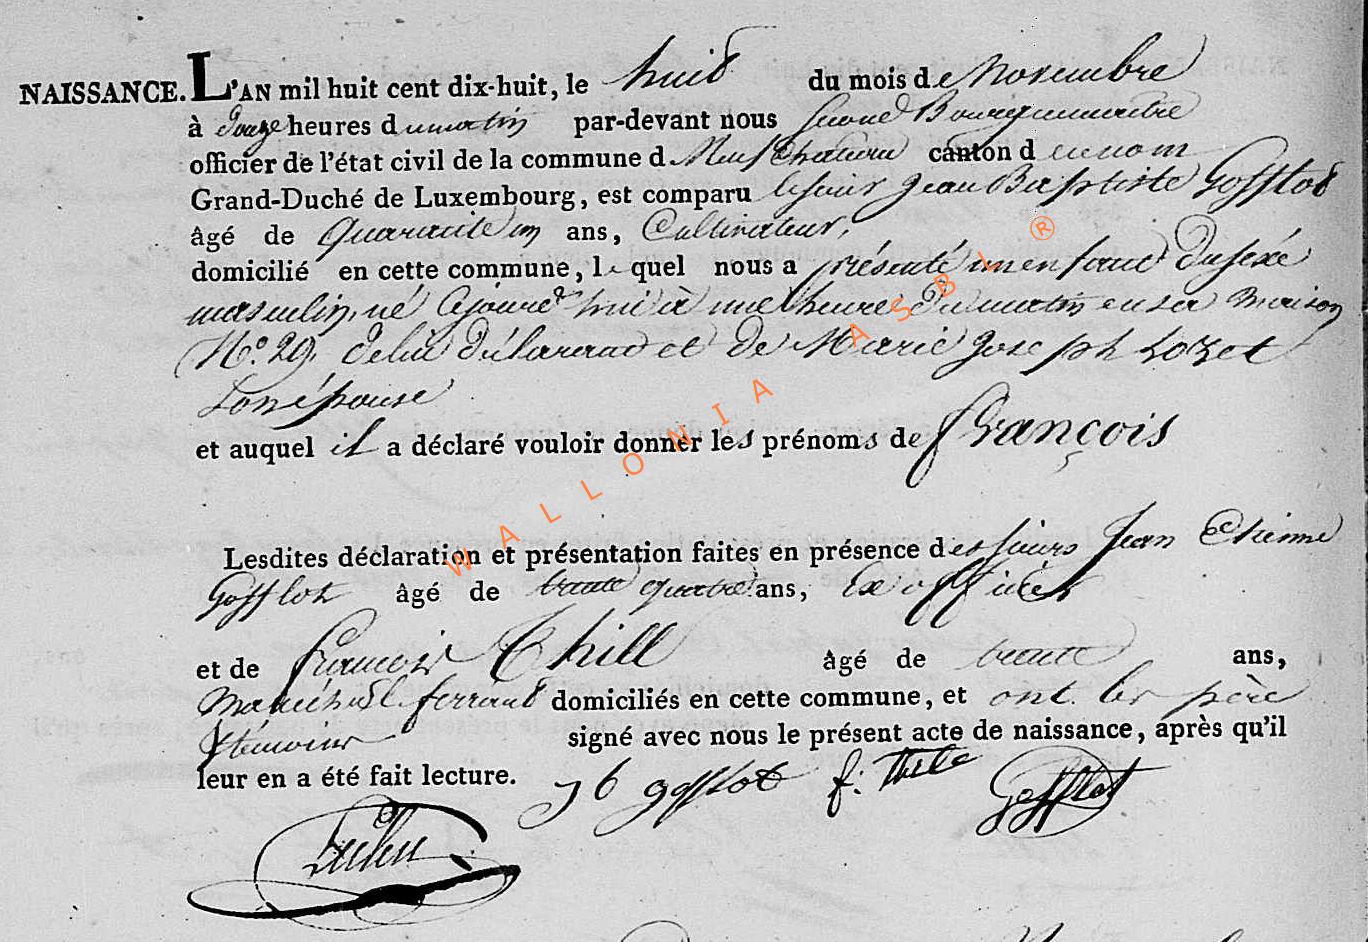 NAISSANCE. L'AN mil huit cent dix-huit, le huit du mois de Novembre
à douze heures du matin par-devant nous second Bourguemaitre
officier de l'état civil de la commune d Neufchateau canton d ce nom
Grand-Duché de Luxembourg, est comparu le sieur Jean Baptiste Gofflot
âgé de quarante un ans, Cultivateur,
domicilié en cette commune, le quel nous a présenté un enfant du sexe
masculin, né cejourd'hui à une heure du matin en sa maison
N.o 29, de lui déclarant et de Marie Joseph Lozet
son épouse
et auquel il a déclaré vouloir donner les prénoms de François
Lesdites déclaration et présentation faites en présence des sieurs Jean Etienne
Gofflot âgé de trente quatre ans, Ex officier
et de François Thill âgé de trente ans,
Maréchal ferrant domiciliés en cette commune, et ont les père
& témoins signé avec nous le présent acte de naissance, après qu'il
leur en a été fait lecture.
J b gofflot f: Thile Gofflot
WALLONIA ASBL ®